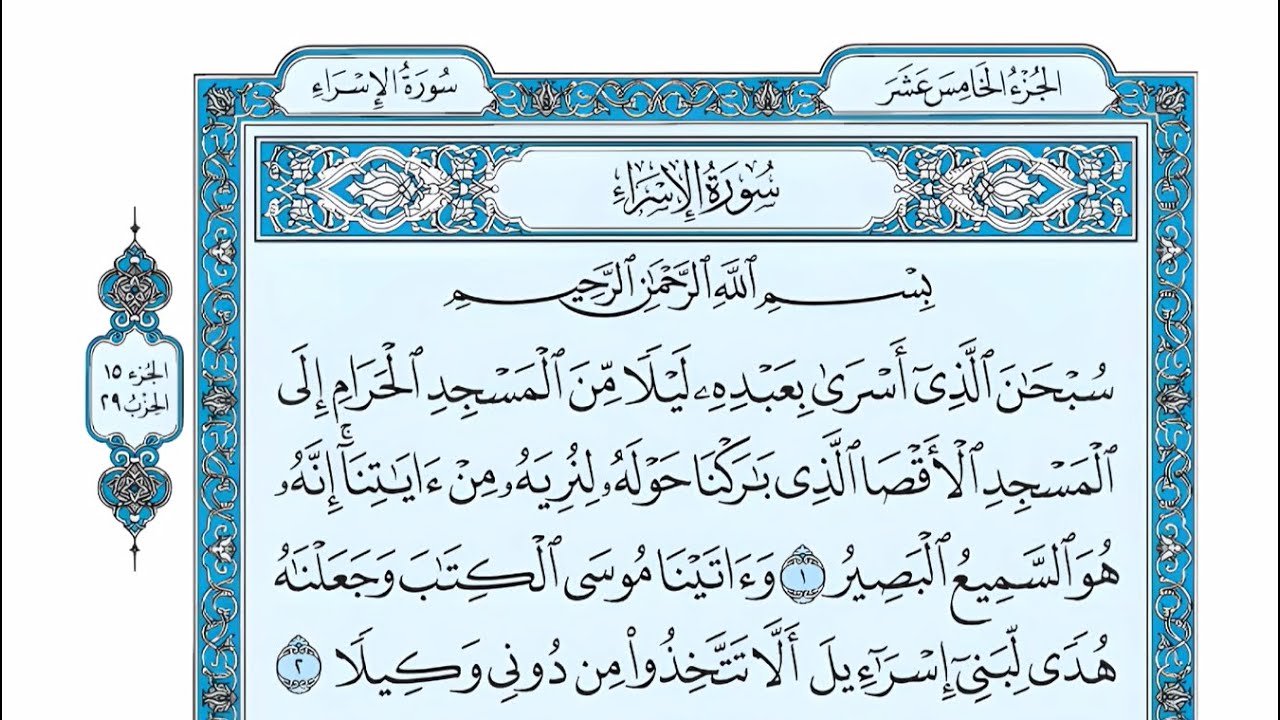 الجُزْءُ الخَامِسَ عَشَرَ
سُورَةُ الإِسْرَاءِ
سُورَةُ الإِسْرَاءِ
بِسْمِ ٱللَّهِ ٱلرَّحْمَٰنِ ٱلرَّحِيمِ
سُبْحَٰنَ ٱلَّذِىٓ أَسْرَىٰ بِعَبْدِهِۦ لَيْلًا مِّنَ ٱلْمَسْجِدِ ٱلْحَرَامِ إِلَى
ٱلْمَسْجِدِ ٱلْأَقْصَا ٱلَّذِى بَٰرَكْنَا حَوْلَهُۥ لِنُرِيَهُۥ مِنْ ءَايَٰتِنَآ ۚ إِنَّهُۥ
هُوَ ٱلسَّمِيعُ ٱلْبَصِيرُ ١ وَءَاتَيْنَا مُوسَى ٱلْكِتَٰبَ وَجَعَلْنَٰهُ
هُدًى لِّبَنِىٓ إِسْرَٰٓءِيلَ أَلَّا تَتَّخِذُوا۟ مِن دُونِى وَكِيلًا ٢
الجُزء ١٥
الحِزْبُ ٢٩